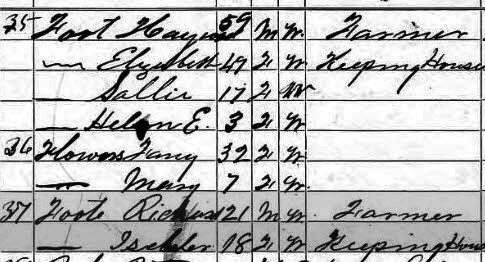 35 Foot Haywood 59 M W Farmer
— Elizabeth 49 F W Keeping House
— Sallie 17 F W
— Helen E. 3 F W
36 Flowers Fany 32 F W
— Mary 7 F W
37 Foote Richard 21 M W Farmer
— 18 F W Keeping House